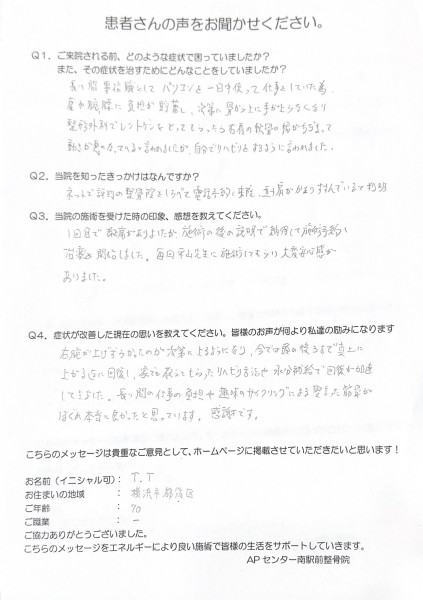 患者さんの声をお聞かせください。
Q1．ご来院される前、どのような症状で困っていましたか？
また、その症状を治すためにどんなことをしていましたか？
長い間事務職としてパソコンを一日中使って仕事をしていた為、
肩や腕に負担が貯蓄し、次第に肩から上に手が上らなくなり
整形外科でレントゲンをとってもらったら右肩の軟骨の
動きが悪くなっていると言われましたが、自分でリハビリをするように言われました。
Q2．当院を知ったきっかけはなんですか？
ネットで評判の整骨院をしらべて電話予約し来院、
Q3．当院の施術を受けた時の印象、感想を教えてください。
1回目で効果がありよいか 施術の後の説明で納得して施術予約し
治療を開始しました。毎回 先生に施術してもらい大変安心感が
ありました。
Q4．症状が改善した現在の思いを教えてください。皆様のお声が何より私達の励みになります
右腕が上げずらかったのが次第に上るようになり、今では 後ろまで真上に
上がる迄に回復し、家でも教えてもらったリハビリ方法や水分補給で回復が加速
してきました。長い間の仕事の負担や趣味のサイクリングによる 筋肉が
ほぐれ本当に良かったと思っています。感謝です。
こちらのメッセージは貴重なご意見として、ホームページに掲載させていただきたいと思います！
お名前（イニシャル可）： T．T
お住まいの地域 ： 横浜市都筑区
ご年齢 ： 70
ご職業 ： ー
ご協力ありがとうございました。
こちらのメッセージをエネルギーにより良い施術で皆様の生活をサポートしていきます。
APセンター南駅前整骨院